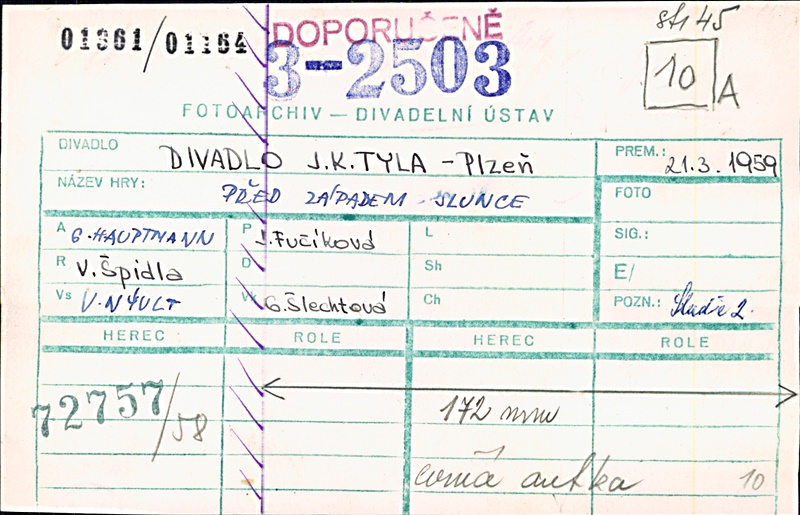 01361/01164
DOPORUČENĚ
str 45
3-2503
10 A
FOTOARCHIV — DIVADELNÍ ÚSTAV
DIVADLO DIVADLO J.K.TYLA - Plzeň
PREM.: 21.3.1959
NÁZEV HRY: PŘED ZÁPADEM SLUNCE
FOTO
A G. HAUPTMANN P J. Fučíková L
SIG.:
R V. Špidla D Sh
E/
Vs V. NÝVLT Vk G. Šlechtová Ch
POZN.: 2.
HEREC ROLE HEREC ROLE
72757/58
172 mm
10